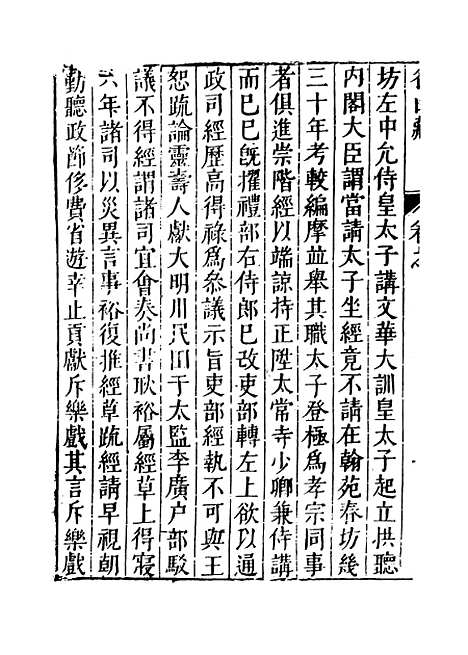 坊左中允侍皇太子講文華大訓皇太子起立拱聽
内閣大臣謂當請太子坐經竟不請在翰苑春坊幾
三十年考較編摩並舉其職太子登極為孝宗同事
者俱進崇階經以端諒持正陞太常寺少卿兼侍講
而已已旣擢禮部右侍郎已改吏部轉左上欲以通
政司經歷高得祿為叅議示旨吏部經執不可與王
恕疏論靈壽人獻大明川民田于太監李廣户部駁
議不得經謂諸司宜會奏尚書耿裕屬經草上得寢
六年諸司以災異言事裕復推經草疏經請早視朝
勤聽政節侈費省遊幸止貢獻斥樂戲其言斥樂戲